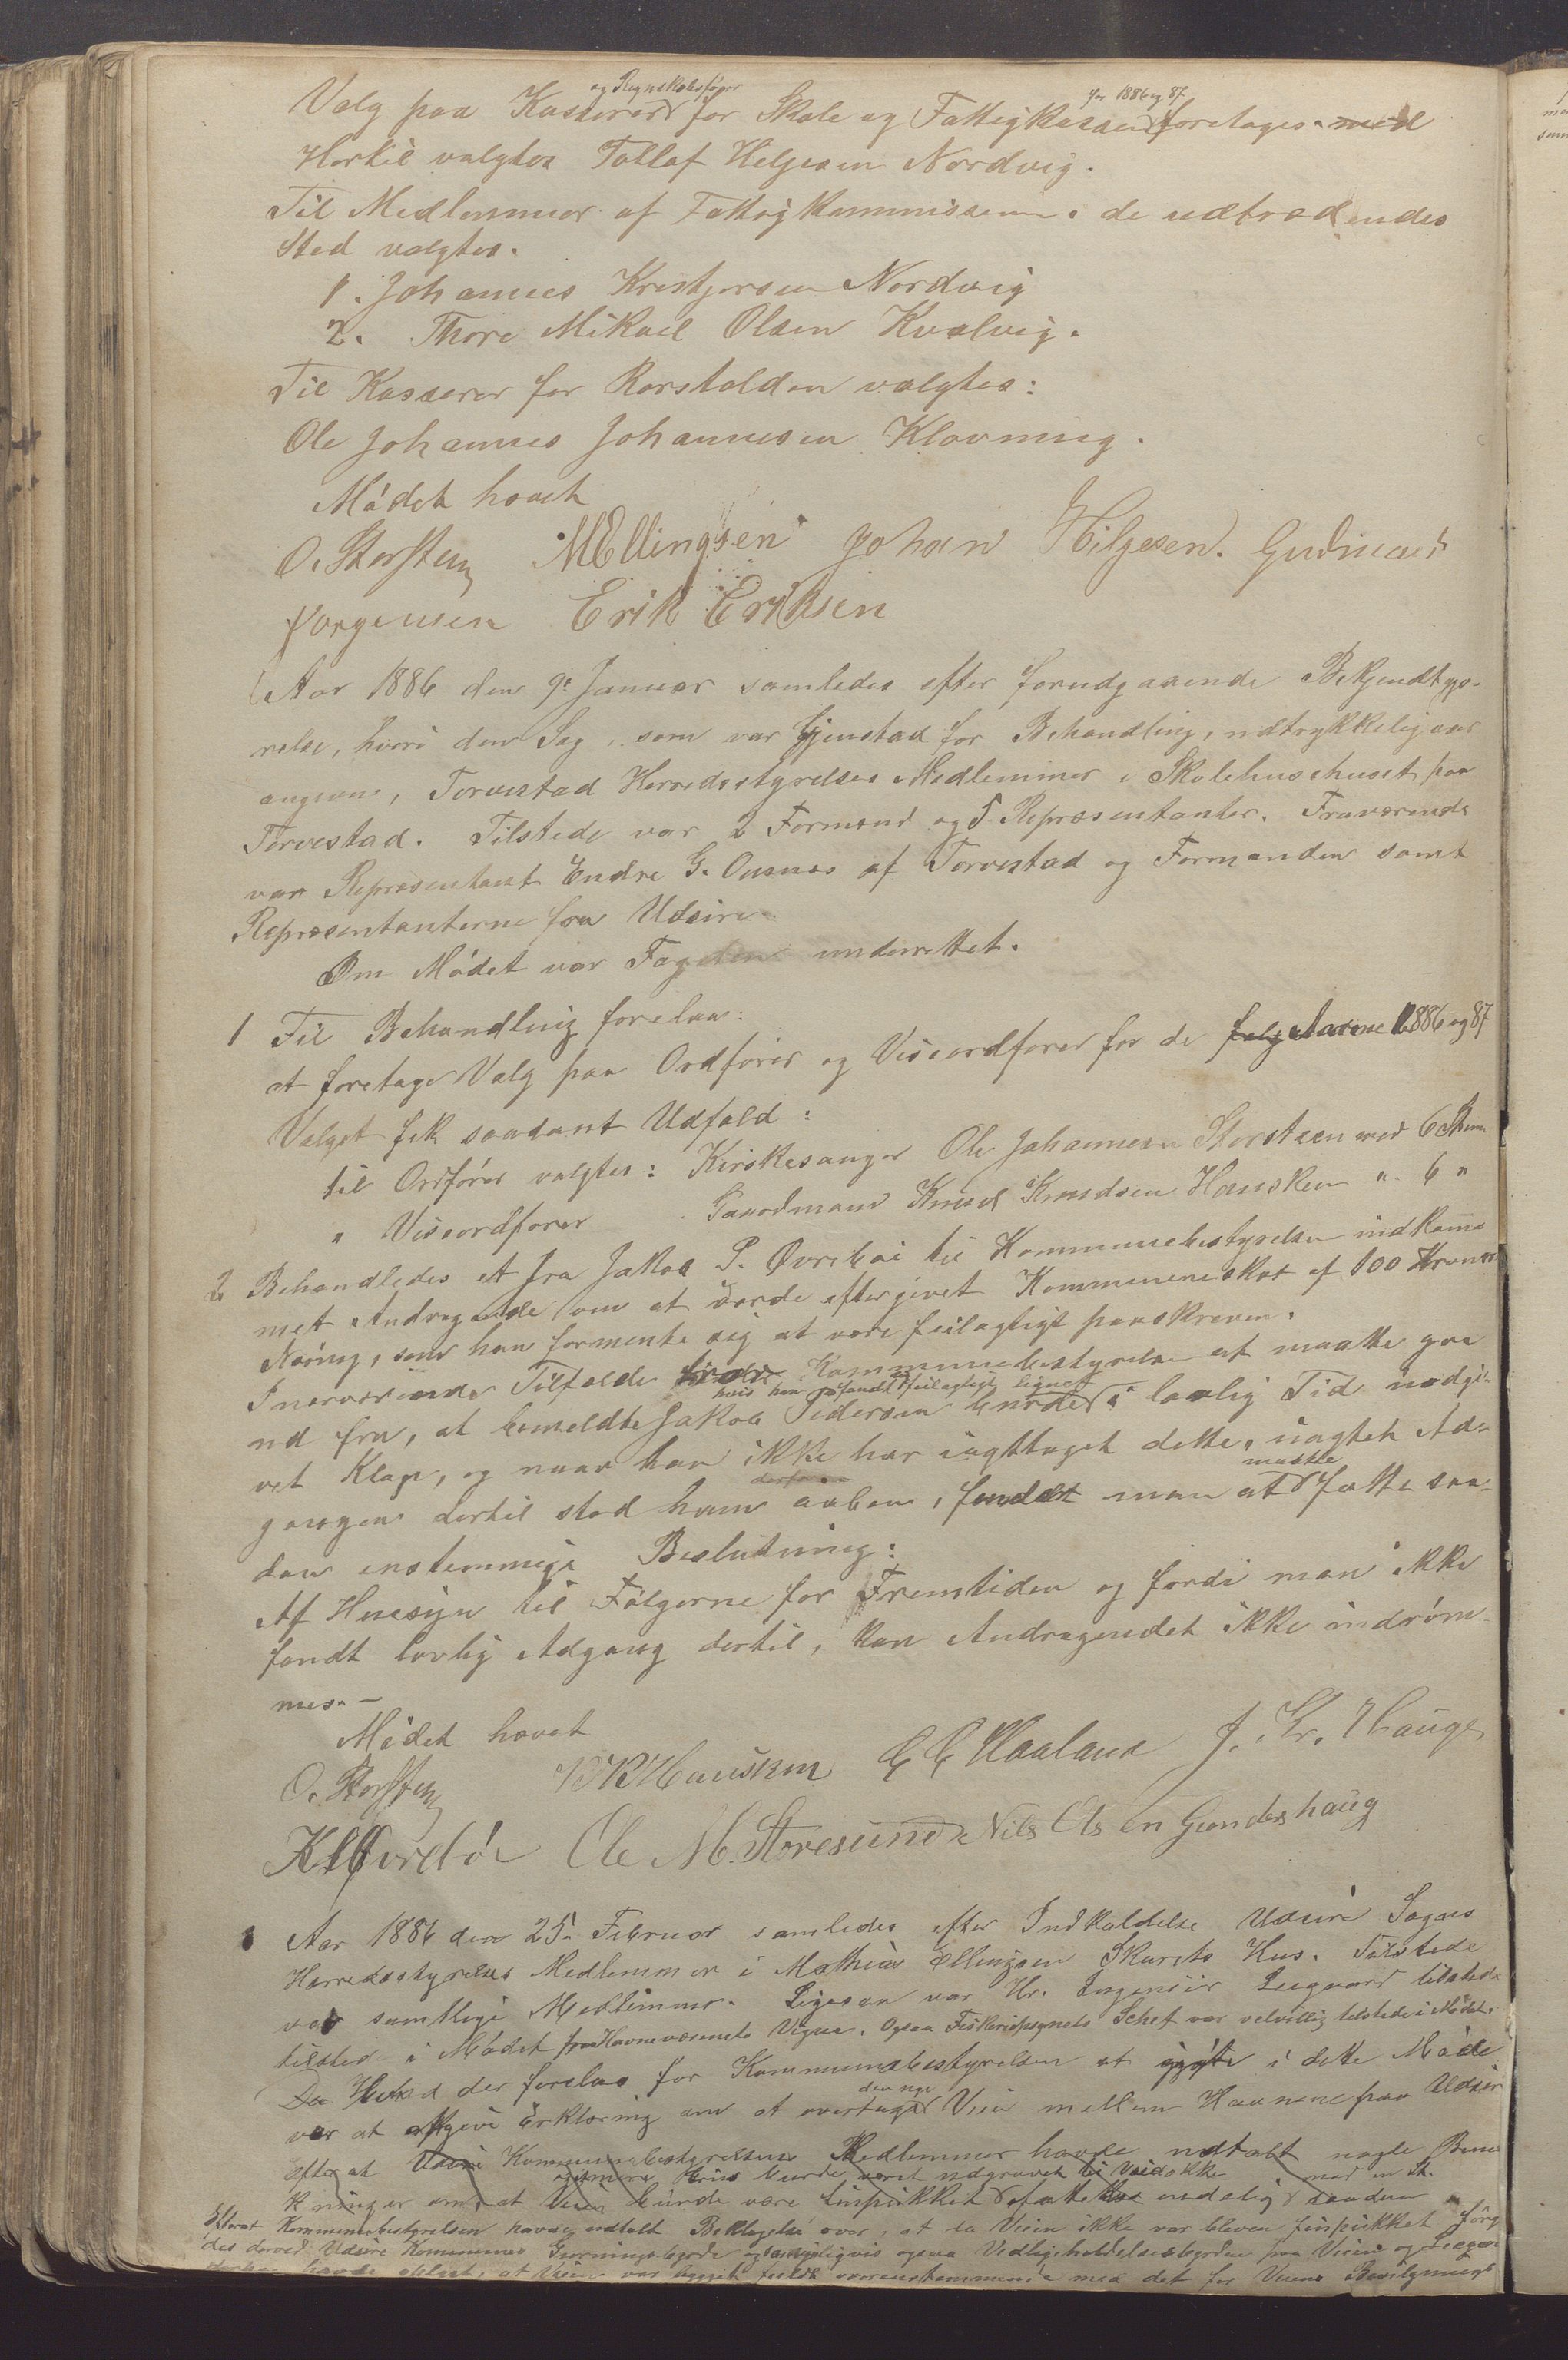 Valg paa Kasserer og Regnskabsfører for Skole og Fattigkassen for 1886 og 87 foretages. med
Hertil valgtes Tollaf Helgesen Nordvig.
Til Medlemmer af Fattigkommissionen i de udtrædendes
Sted valgtes.
1. Johannes Kristjersen Nordvig
2. Thore Mikael Olsen Kvalvig.
Til Kasserer for Kørstolden valgtes:
Ole Johannes Johannesen Klovning.
Mødet hævet
O. Storsteen MEllingsen Johan Hilgesen. Gudmund
Jørgensen Erik Eriksen
Aar 1886 den 9de Januar samledes efter forudgaaende Bekjendtgjø-
relse, hvori den Sag, som var Gjenstad for Behandling, udtrykkelig var
angiven, Torvestad Herredsstyrelses Medlemmer i Skolehuschuset paa
Torvestad. Tilstede var 2 Formænd og 5 Repræsentanter. Fraværende
var Repræsentant Endre G. Osnes af Torvestad og Formanden samt
Repræsentanterne fra Udsire.
Om Mødet var Fogden underrettet.
1 Til Behandling forelaa:
at foretage Valg paa Ordfører og Viseordfører for de følg Aarene 1886 og 87
Valget fik saadant Udfald:
til Ordfører valgtes: Kirkesanger Ole Johannesen Storsteen med 6 Stem
" Viseordfører Gaardmand Knud Knudsen Hausken " 6 "
2 Behandledes et fra Jakob P. Øvrebøi til Kommunebestyrelsen indkom-
met Andragende om at vorde eftergivet Kommuneskat af 100 Kroner
Næring, som han formente sig at være feilagtigt paaskreven.
I nærværende Tilfælde tror Kommunebestyrelsen at maatte gaa
ud fra, at bemeldte Jakob Pedersen hvis han fandt sig feilagtigt lignet burde i lovlig Tid indgi-
vet Klage, og naar han ikke har iagttaget dette, uagtet Ad-
gangen dertil stod ham aaben, derfor fandt man at maatte fatte saa-
dan enstemmige Beslutning:
Af Hensyn til Følgerne for Fremtiden og fordi man ikke
fandt lovlig Adgang dertil, kan Andragendet ikke indrøm-
mes. —
Mødet hævet
O. Storsteen KKHausken E E Haaland J. Kr. Hauge
K Øvrebø Ole M. Storesund Nils Olsen Gundershaug
1 Aar 1886 den 25. Februar samledes efter Indkaldelse Udsire Sogns
Herredsstyrelses Medlemmer i Mathias Ellingsen Skarets Hus. Tilstede
var samtlige Medlemmer. Ligesaa var Hr. Ingeniør Leegaard tilstede
tilsted i Mødet paa Havnevæsenets Vegne. Ogsaa Fiskeriopsynets Schef var velvillig tilstede i Mødet.
Det der forelaa for Kommunebestyrelsen at i dette Møde
var at afgive Erklæring om at overtage den nye Vei mellem Havnene paa Udsire
Efter at Udsire Kommunebestyrelsens Medlemmer havde udtalt nogle Bemær
kninger om, at Veien burde være finpukket endelig saadan
Efterat Kommunebestyrelsen havde udtalt Beklagelse over, at da Veien ikke var bleven finpukket forøg
des derved Udsire Kommunes Gjerningsbyrde og sandsynligvis ogsaa Vedligeholdelsesbyrden paa Veien og Leegaard
havde oplyst, at Veien var bygget fuldt overensstemmende med det for Veiens Bevilgning